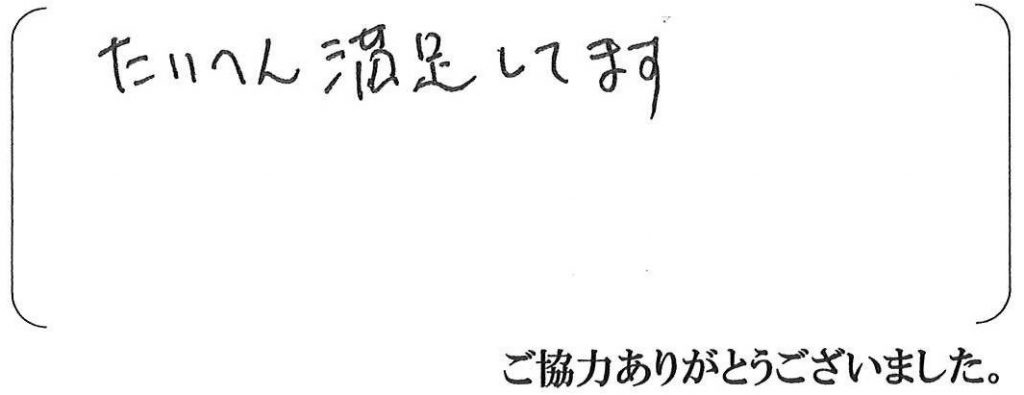 たいへん満足してます
ご協力ありがとうございました。